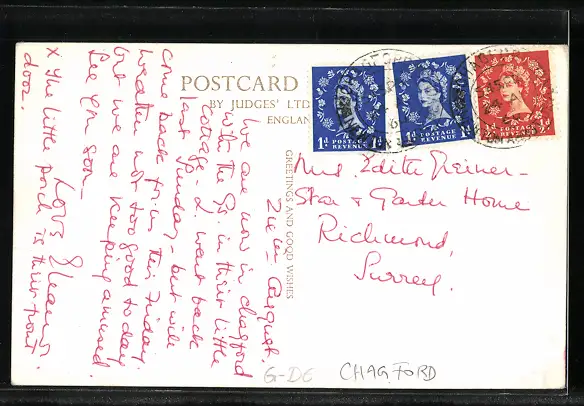 POSTCARD
BY JUDGES' LTD
ENGLAND
GREETINGS AND GOOD WISHES
1d POSTAGE REVENUE 1d
1d POSTAGE REVENUE 1d
½d POSTAGE REVENUE ½d
Mrs Edith Greiner -
Star & Garter Home
Richmond,
Surrey.
August.
We are now in Chagford
with the in their little
cottage - I went back
last Sunday - but will
come back this Friday.
Weather not too good today
but we are keeping amused.
See you soon -
Love
x The little porch is their front
door.
G-D6
CHAGFORD